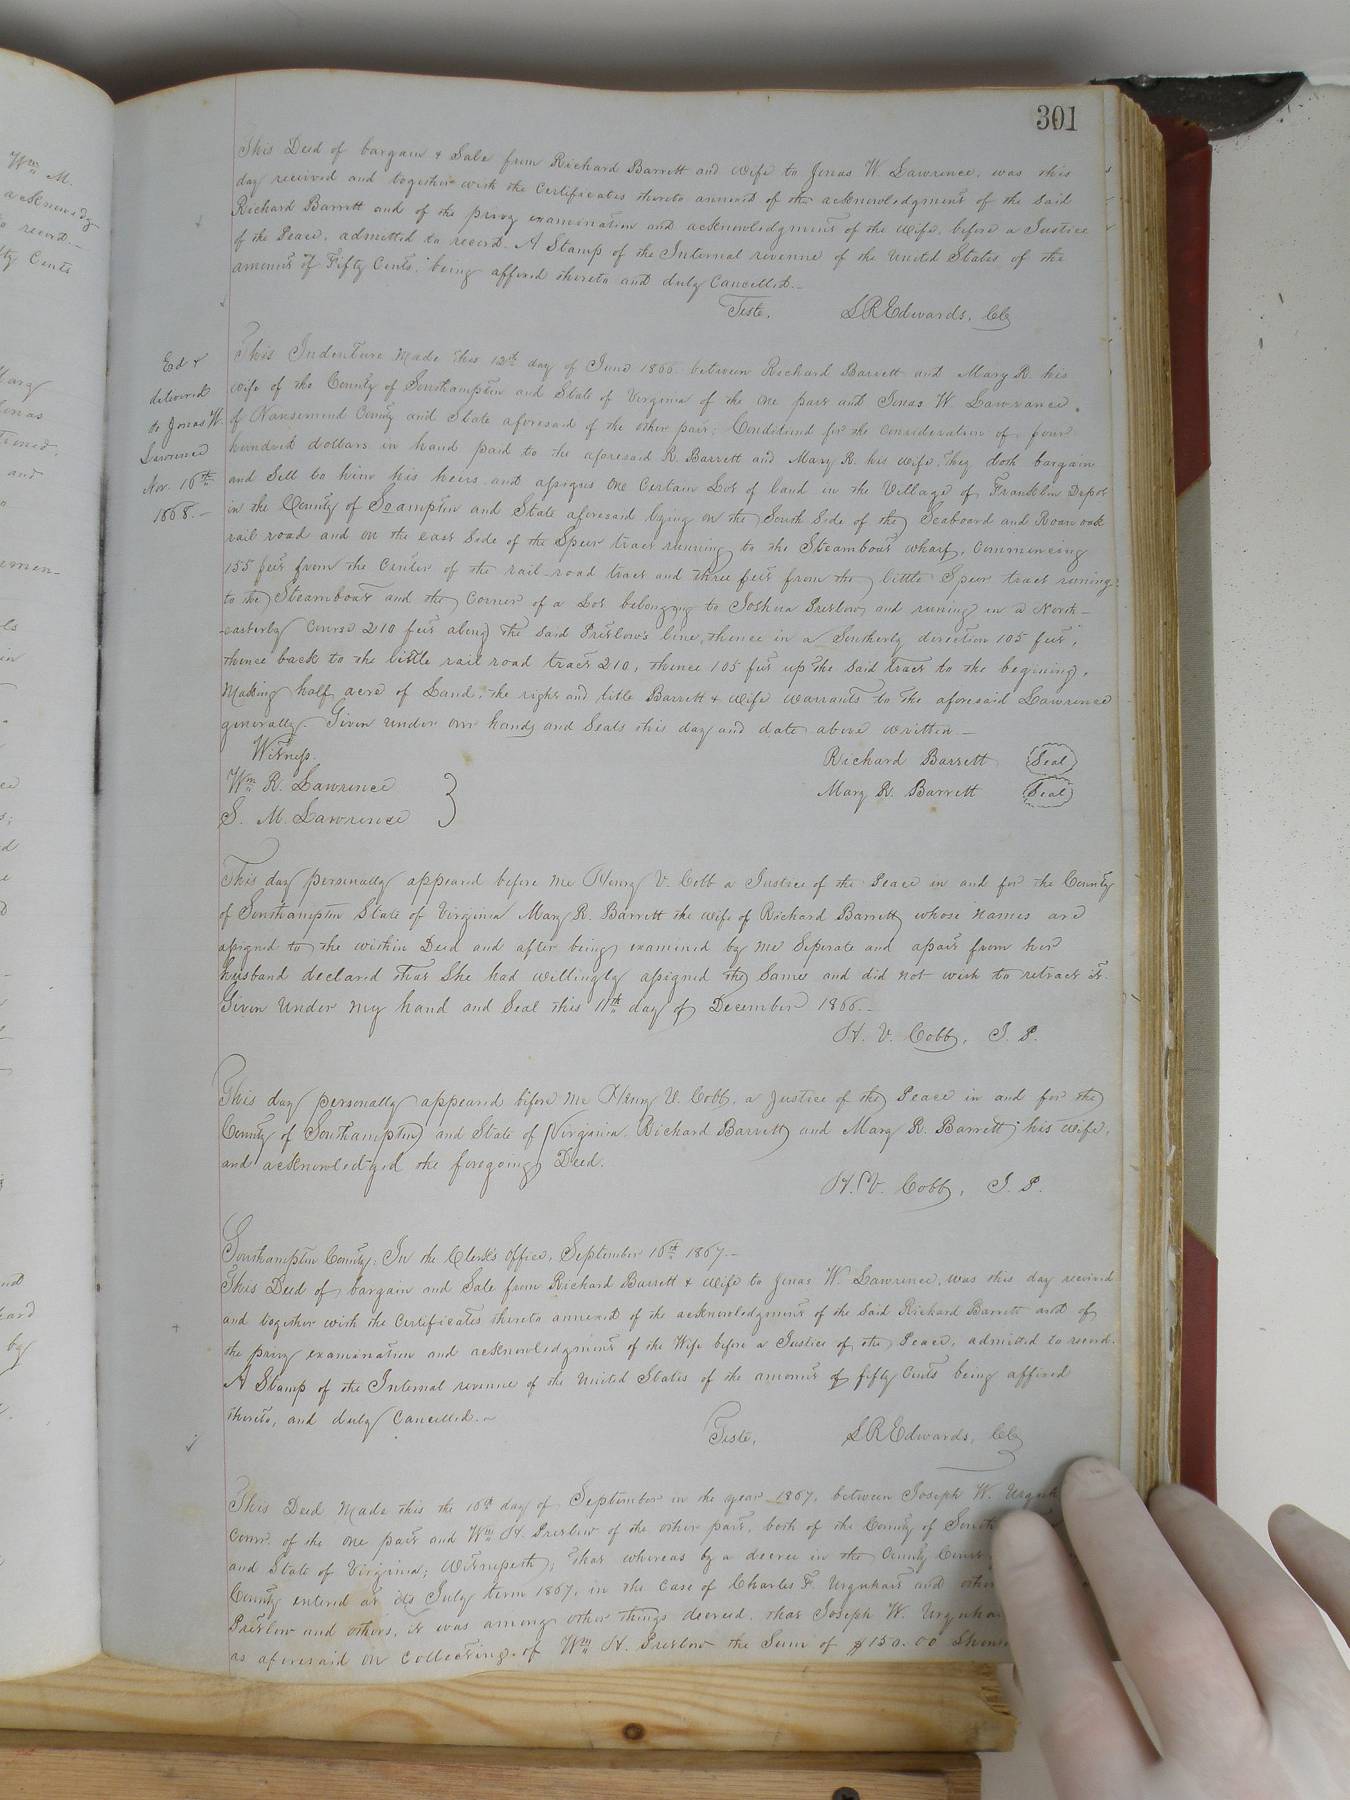 301
This Deed of bargain & Sale from Richard Barrett and wife to Jonas W. Lawrence, was this
day received and together with the Certificates thereto annexed of the acknowledgment of the said
Richard Barrett and of the privy examination and acknowledgment of the wife, before a Justice
of the Peace, admitted to record. A Stamp of the Internal revenue of the United States of the
amount of Fifty Cents, being affixed thereto and duly Cancelled.
Teste, L R Edwards, Clk
Exd &
delivered
to Jonas W.
Lawrence
Nov. 16th
1868.
This Indenture Made this 12th day of June 1866 between Richard Barrett and Mary R. his
wife of the County of Southampton and State of Virginia of the one part and Jonas W. Lawrance
of Nansemond County and State aforesaid of the other part; Conditiond for the consideration of four
hundred dollars in hand paid to the aforesaid R. Barrett and Mary R. his wife, they doth bargain
and Sell to him his heirs and assigns one Certain Lot of land in the Village of Franklin Depot
in the County of Soampton and State aforesaid lying on the South Side of the Seaboard and Roanoak
rail road and on the east Side of the Spur tract running to the Steamboat wharf, Commencing
155 feet from the Center of the rail road tract and three feet from the little Spur tract runing
to the Steamboat and the Corner of a Lot belonging to Joshua Pretlow and runing in a North-
easterly Course 210 feet along the said Pretlow's line, thence in a Southerly direction 105 feet,
thence back to the little rail road tract 210, thence 105 feet up the Said tract to the begining,
Making half acre of Land, the right and title Barrett & wife warrants to the aforesaid Lawrence
generally. Given under our hands and Seals this day and date above written
Witness. Richard Barrett Seal
Wm R. Lawrence Mary R. Barrett Seal
S. M. Lawrence
This day personally appeared before me Henry V. Cobb a Justice of the Peace in and for the County
of Southampton State of Virginia Mary R. Barrett the wife of Richard Barrett whose names are
assigned to the within Deed and after being examined by me Seperate and apart from her
husband declared that She had willingly assigned the Same and did not wish to retract it
Given Under my hand and Seal this 11th day of December 1866.
H. V. Cobb, J. P.
This day personally appeared before me Henry V. Cobb, a Justice of the Peace in and for the
County of Southampton and State of Virginia, Richard Barrett and Mary R. Barrett his wife,
and acknowledged the foregoing Deed.
H. V. Cobb, J. P.
Southampton County: In the Clerk's Office, September 16th 1867.
This Deed of bargain and Sale from Richard Barrett & wife to Jonas W. Lawrence, was this day received
and together with the Certificates thereto annexed of the acknowledgment of the said Richard Barrett and of
the privy examination and acknowledgment of the Wife before a Justice of the Peace, admitted to record.
A Stamp of the Internal revenue of the United States of the amount of fifty Cents being affixed
thereto, and duly Cancelled.
Teste, L R Edwards, Clk
This Deed Made this the 16th day of September in the year 1867, between Joseph W. Urquh
Comr. of the one part and Wm H. Pretlow of the other part, both of the County of South
and State of Virginia; Witnesseth; that whereas by a decree in the County Court
County entered at its July term 1867, in the Case of Charles F. Urquhart and other
Pretlow and others, it was among other things decreed, that Joseph W. Urquha
as aforesaid on Collecting of Wm H. Pretlow the Sum of $150.00 Shou